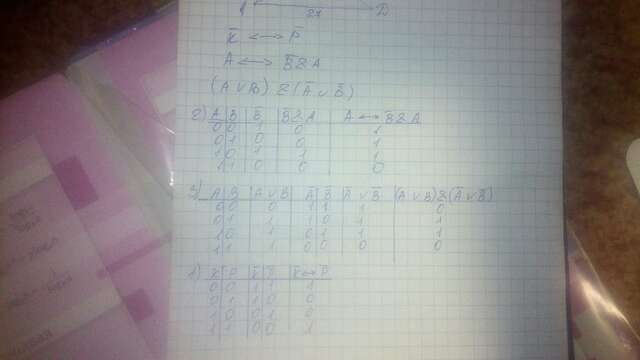 2x D
X̄ ↔ P̄
A ↔ B̄ & A
(A ∨ B) & (Ā ∨ B̄)
2) A B B̄ B̄ & A A ↔ B̄ & A
0 0 1 0 1
0 1 0 0 1
1 0 1 1 1
1 1 0 0 0
3) A B A ∨ B Ā B̄ Ā ∨ B̄ (A ∨ B) & (Ā ∨ B̄)
0 0 0 1 1 1 0
0 1 1 1 0 1 1
1 0 1 0 1 1 1
1 1 1 0 0 0 0
1) X P X̄ P̄ X̄ ↔ P̄
0 0 1 1 1
0 1 1 0 0
1 0 0 1 0
1 1 0 0 1